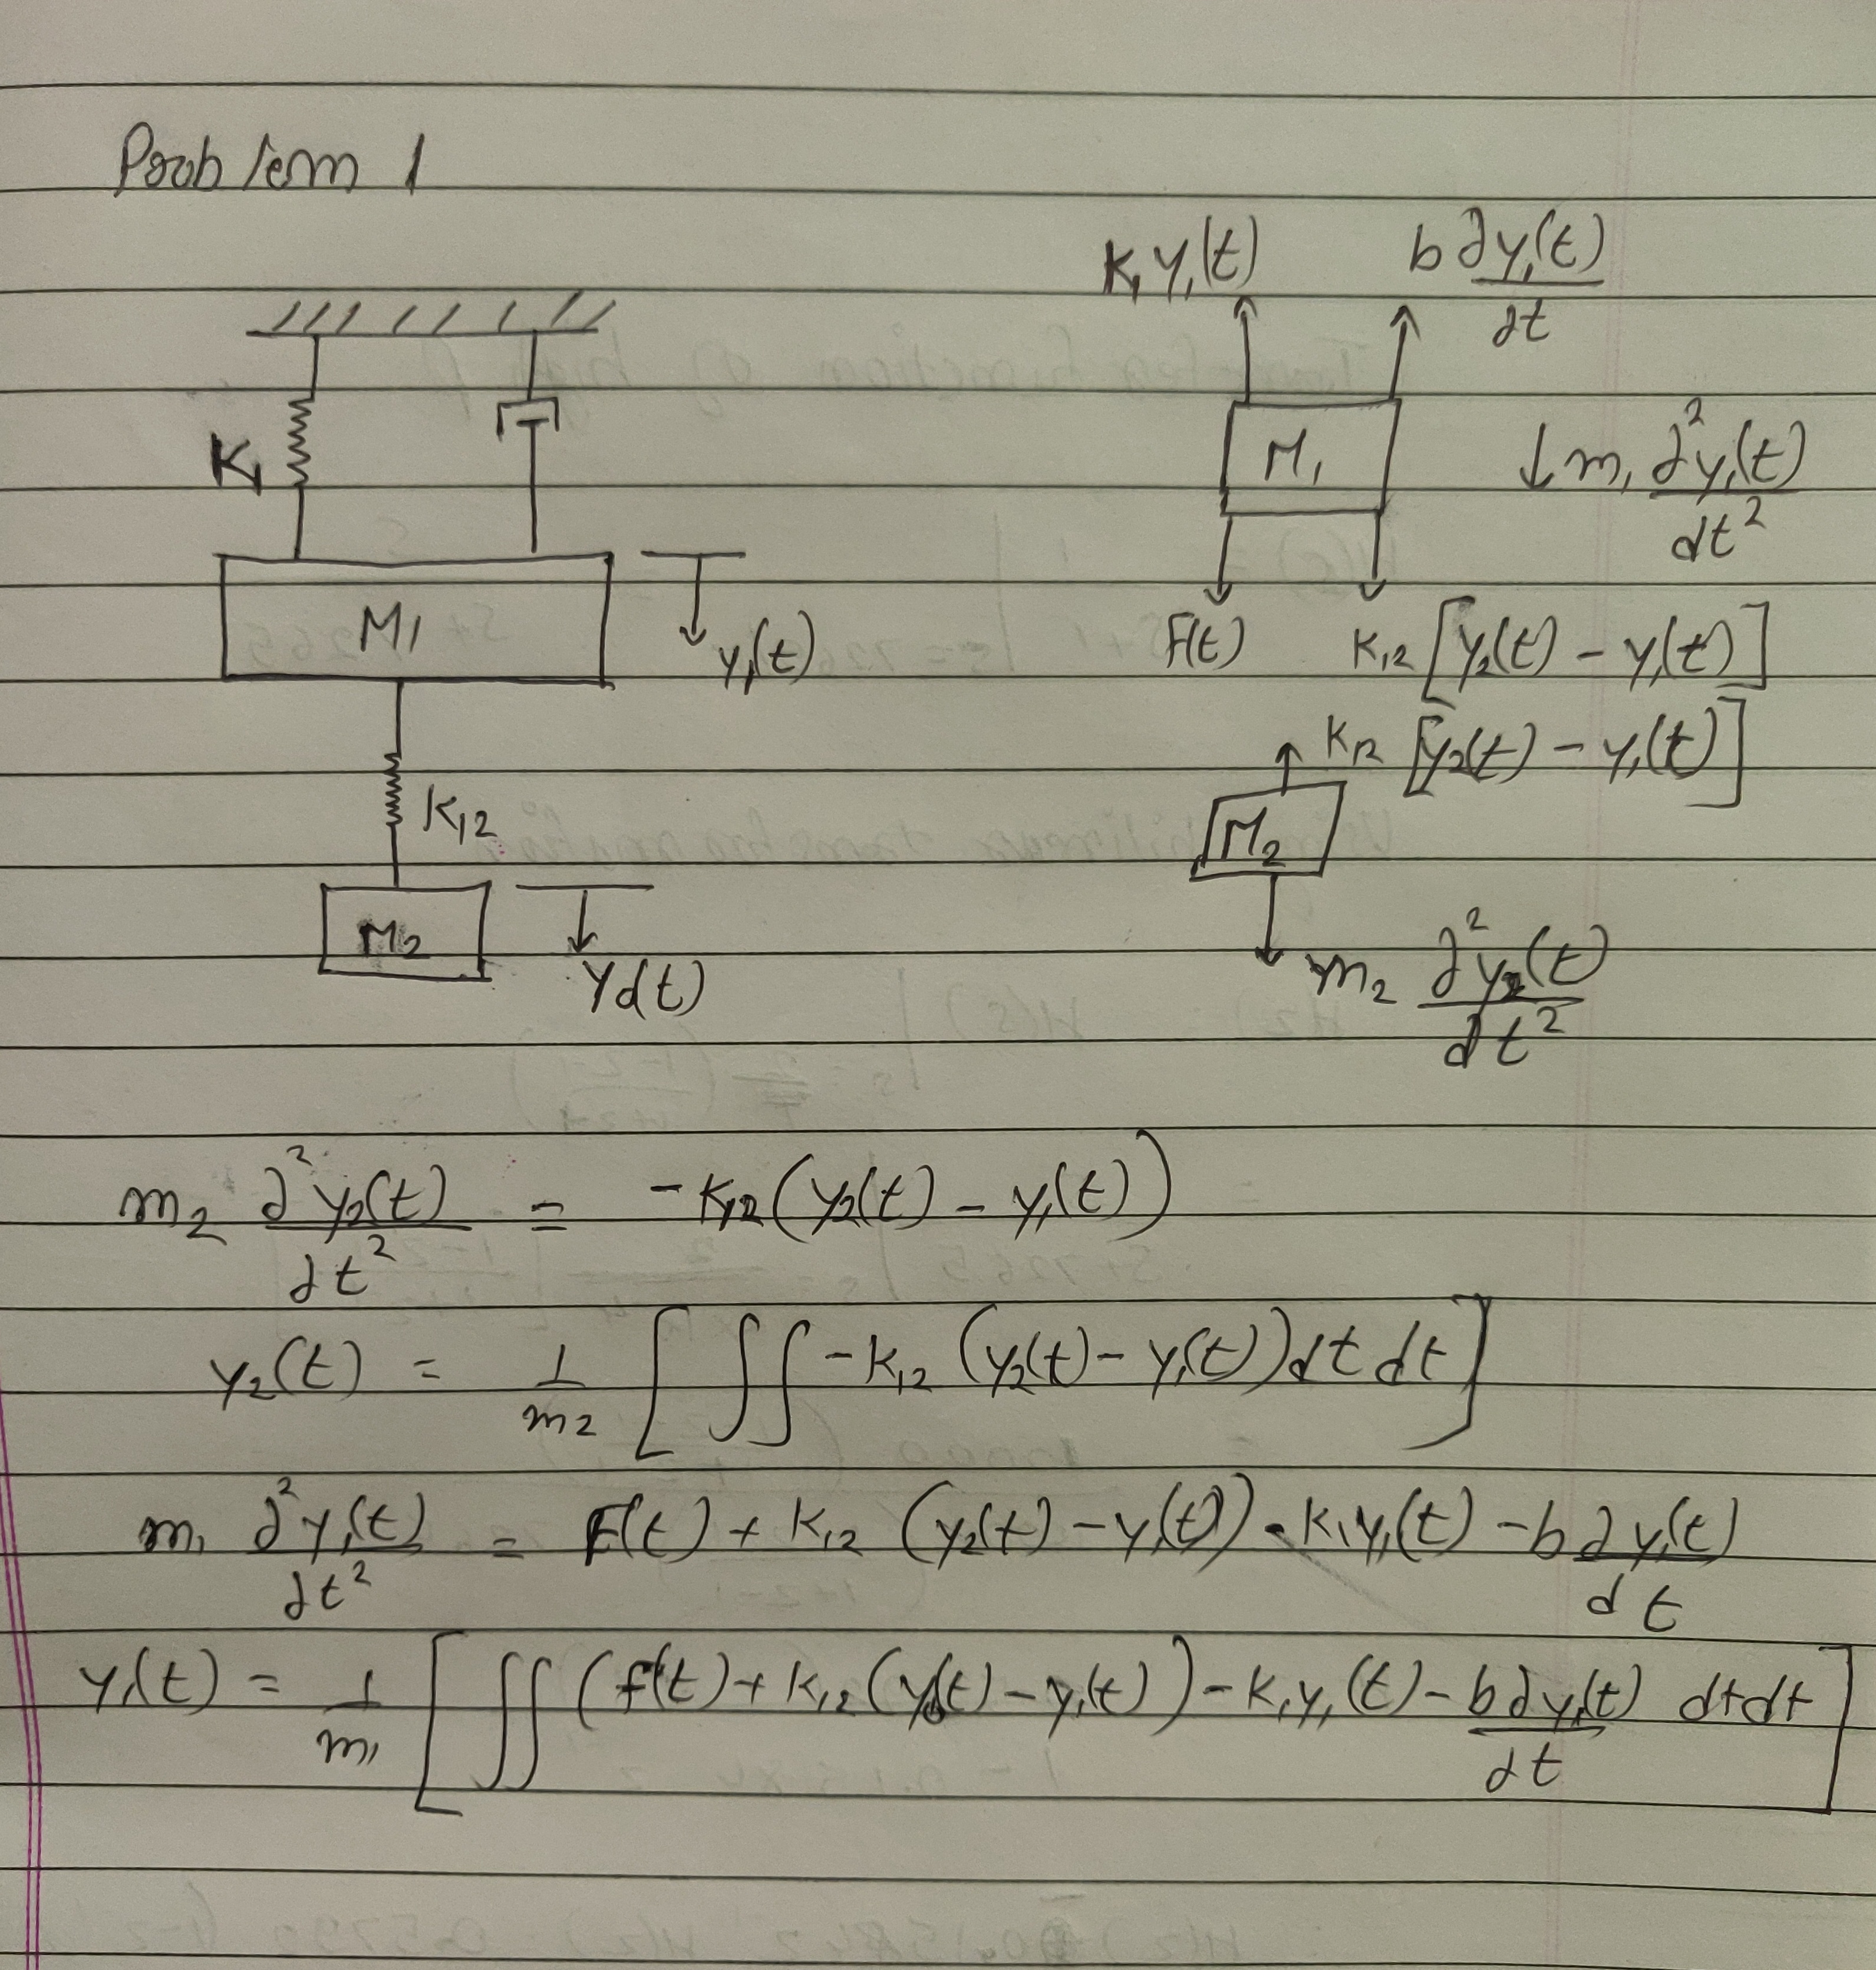 Problem 1
K₁y₁(t) b ∂y₁(t)/∂t
K₁
M₁ ↓ m₁ ∂²y₁(t)/dt²
M1 y₁(t)
F(t) K₁₂[y₂(t) - y₁(t)]
K₁₂[y₂(t) - y₁(t)]
K₁₂
M₂
M₂
yd(t)
m₂ ∂²y₂(t)/dt²
m₂ ∂²y₂(t)/∂t² = -K₁₂(y₂(t) - y₁(t))
y₂(t) = 1/m₂ [∬ -K₁₂(y₂(t) - y₁(t))dt dt]
m₁ ∂²y₁(t)/∂t² = F(t) + K₁₂(y₂(t) - y₁(t)) - K₁y₁(t) - b ∂y₁(t)/dt
y₁(t) = 1/m₁ [∬ (f(t) + K₁₂(y(t) - y₁(t)) - K₁y₁(t) - b∂y₁(t)/∂t dt dt]